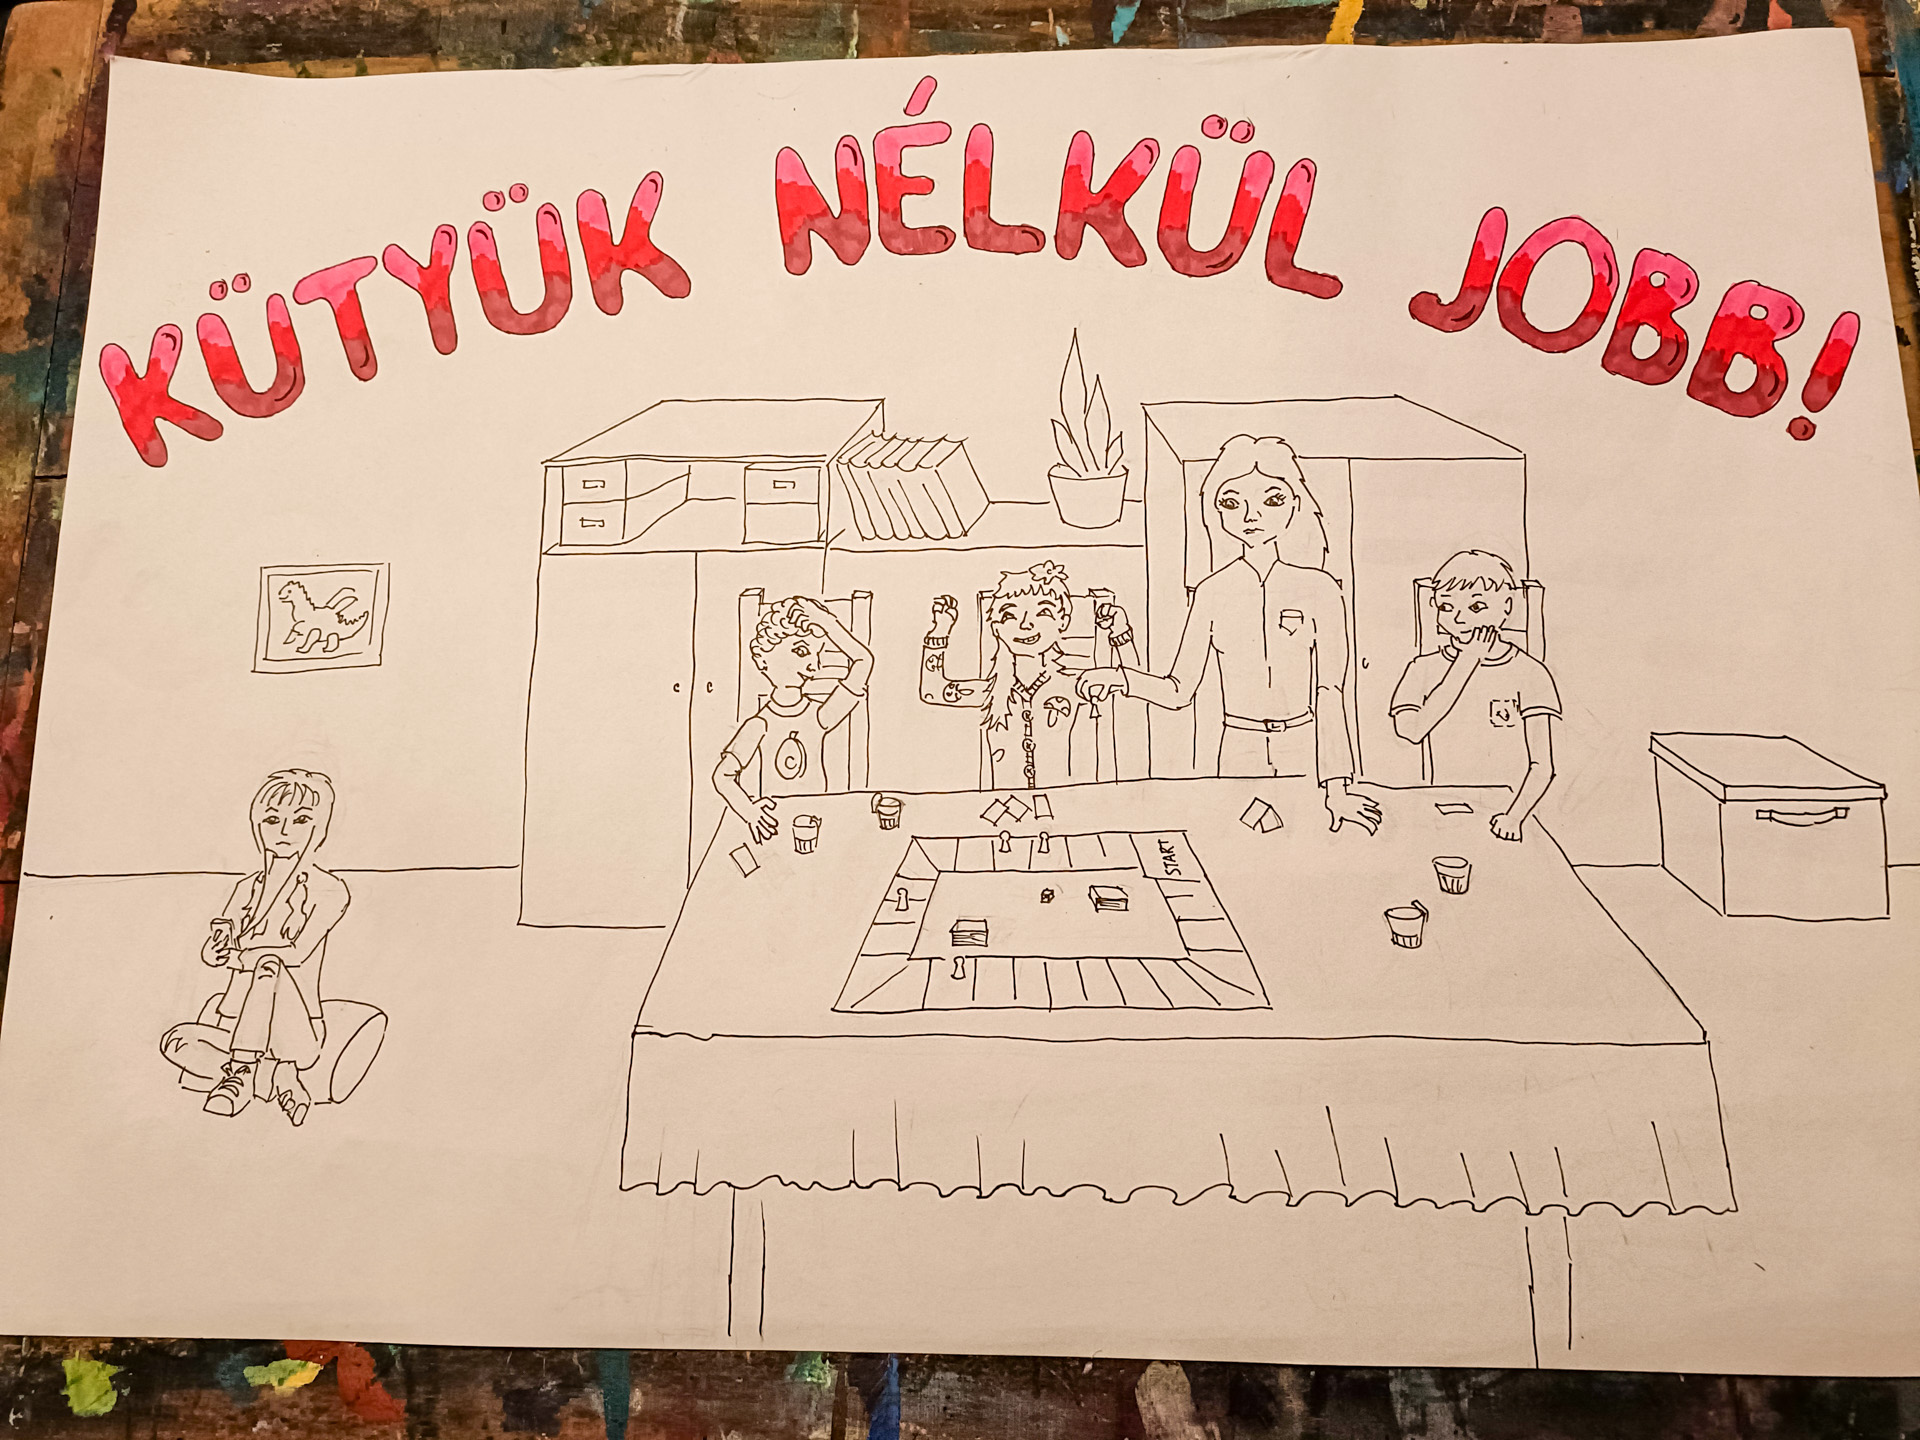 KÜTYÜK NÉLKÜL JOBB!
START
C